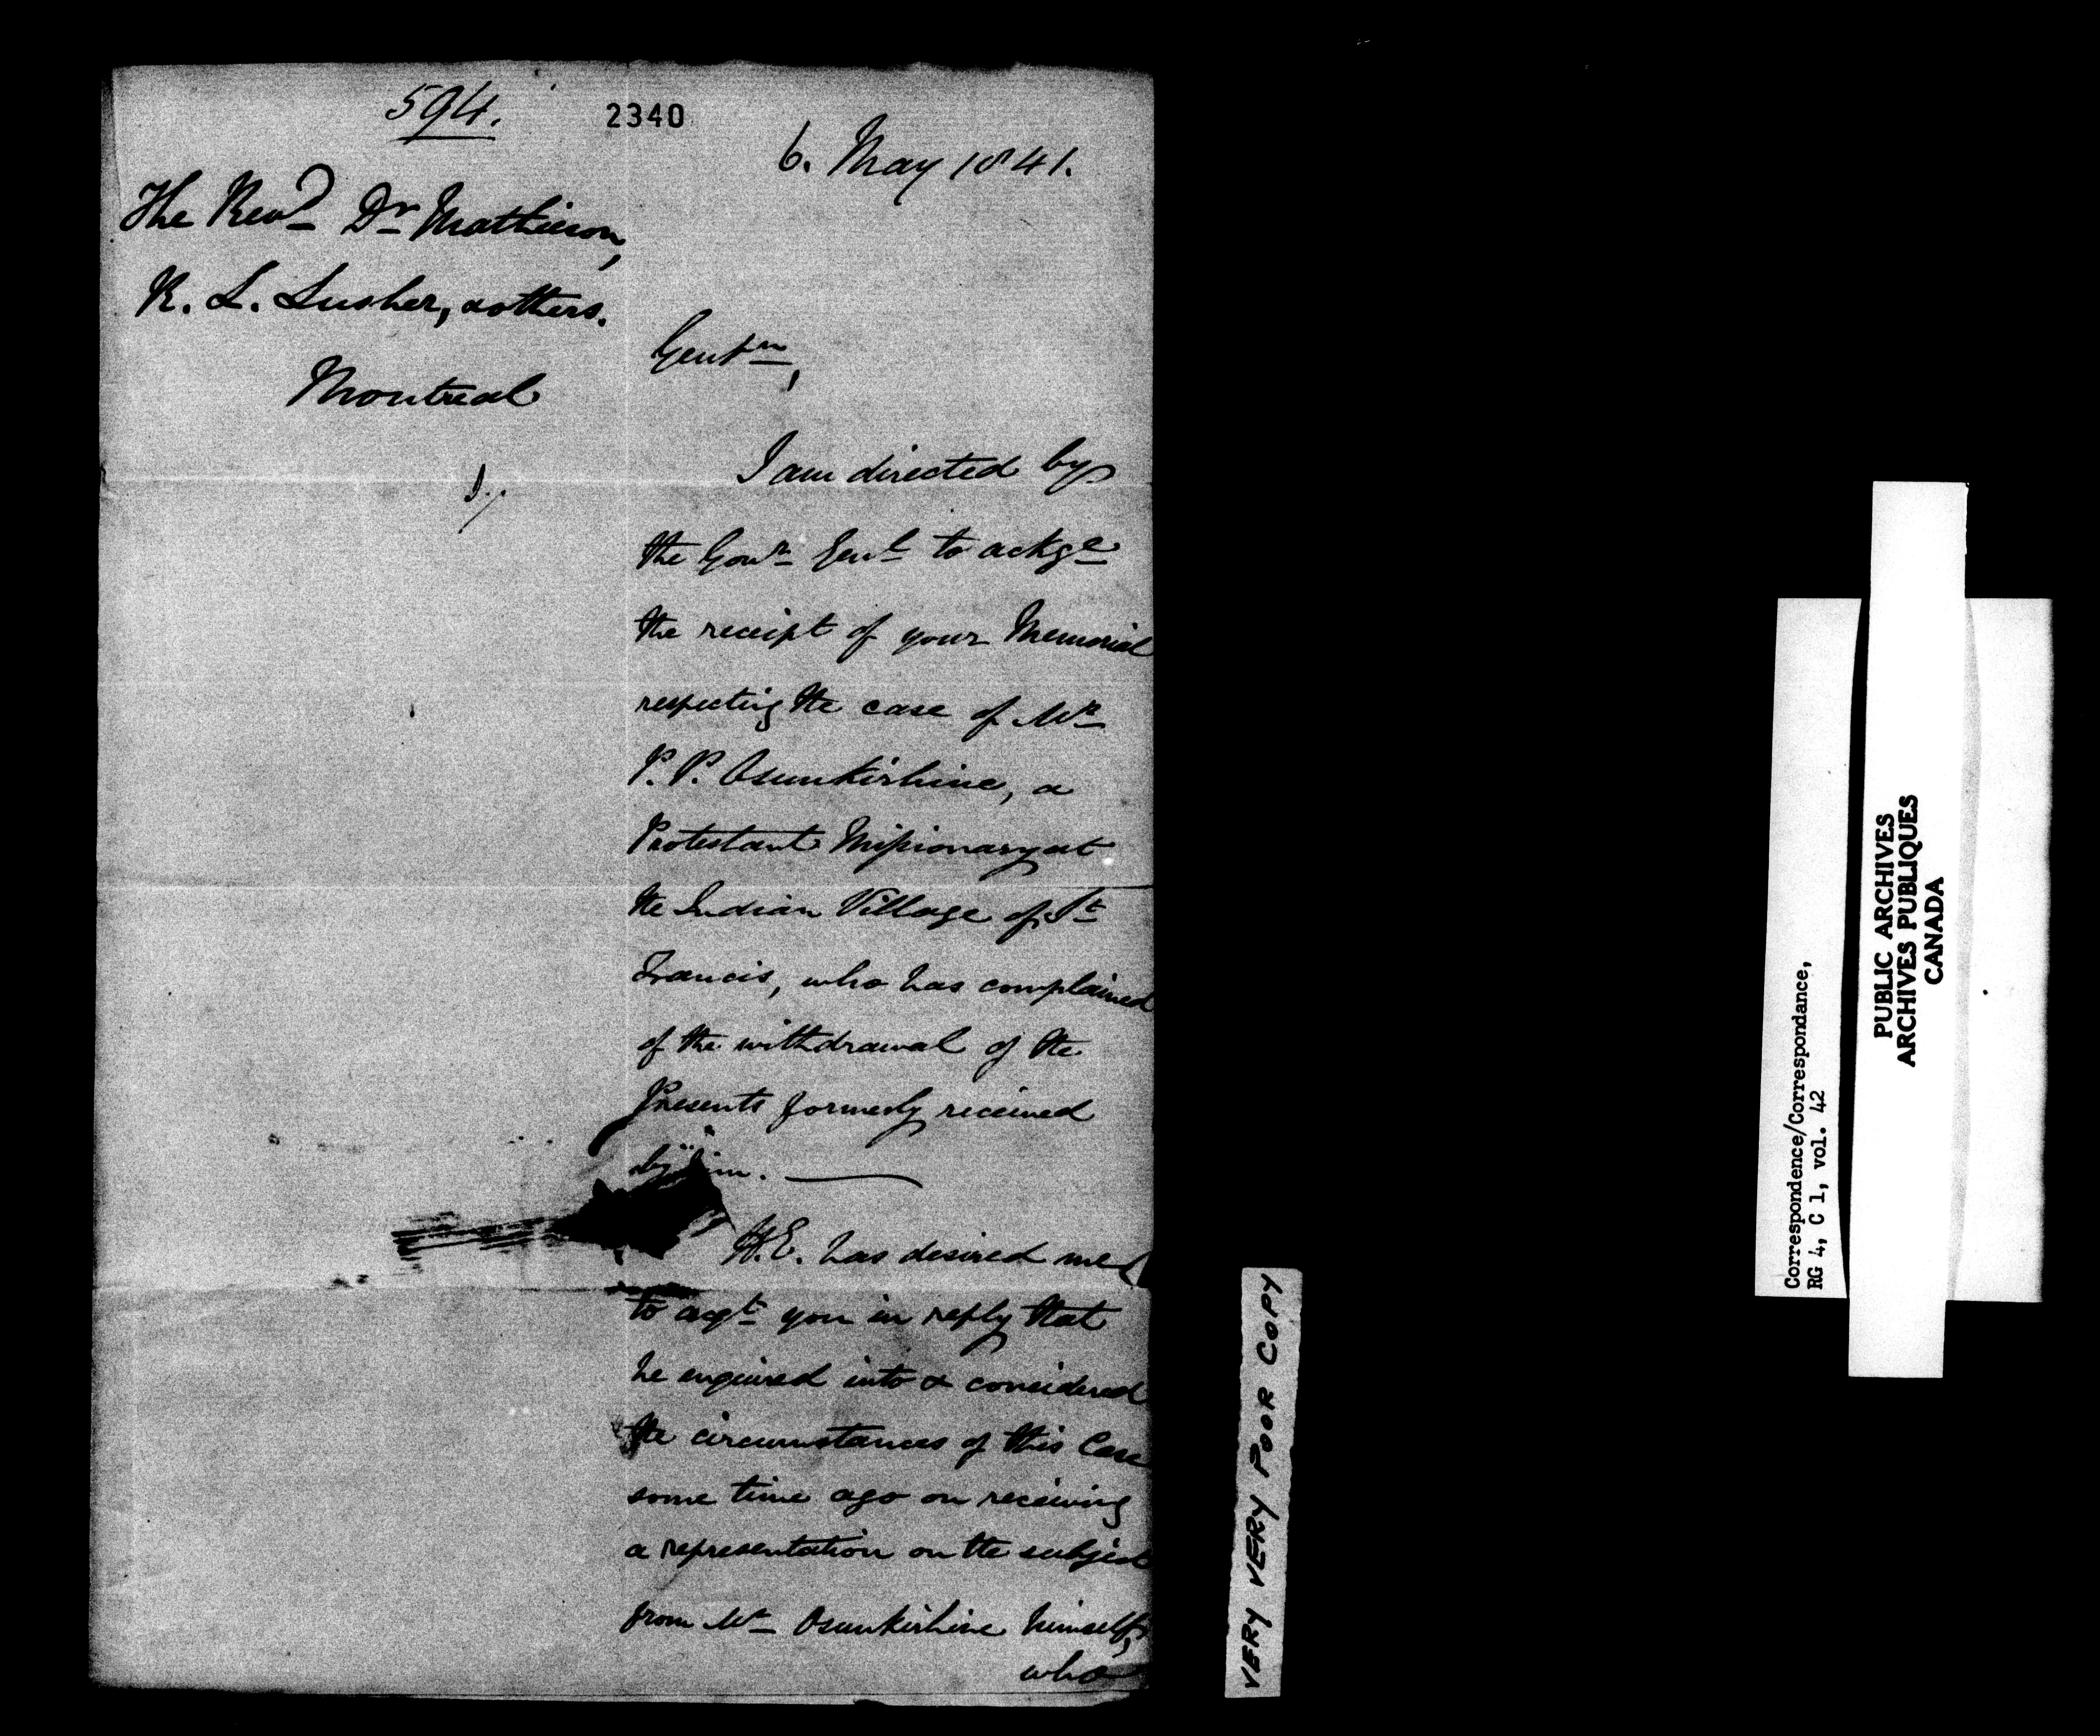 594.
2340
6. May 1841.
The Revd Dr Mathieson,
R. L. Lusher, & others.
Montreal
Gentn,
I am directed by
the Govr Genl to ackge
the receipt of your Memorial
respecting the case of Mr
P. P. Osunkirhine, a
Protestant Missionary at
the Indian Village of St
Francis, who has complained
of the withdrawal of the
Presents formerly received
by him.
H.E. has desired me
to acqt you in reply that
he enquired into & considered
the circumstances of this Case
some time ago on receiving
a representation on the subject
from Mr Osunkirhine himself,
who
VERY VERY POOR COPY
Correspondence/Correspondance,
RG 4, C 1, vol. 42
PUBLIC ARCHIVES
ARCHIVES PUBLIQUES
CANADA